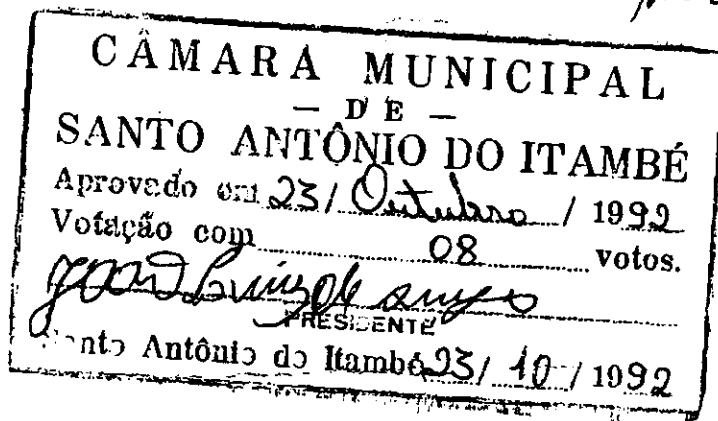 CÂMARA MUNICIPAL
— DE —
SANTO ANTÔNIO DO ITAMBÉ
Aprovado em 23/ Outubro / 1992
Votação com 08 votos.
PRESIDENTE
Santo Antônio do Itambé 23/ 10 / 1992